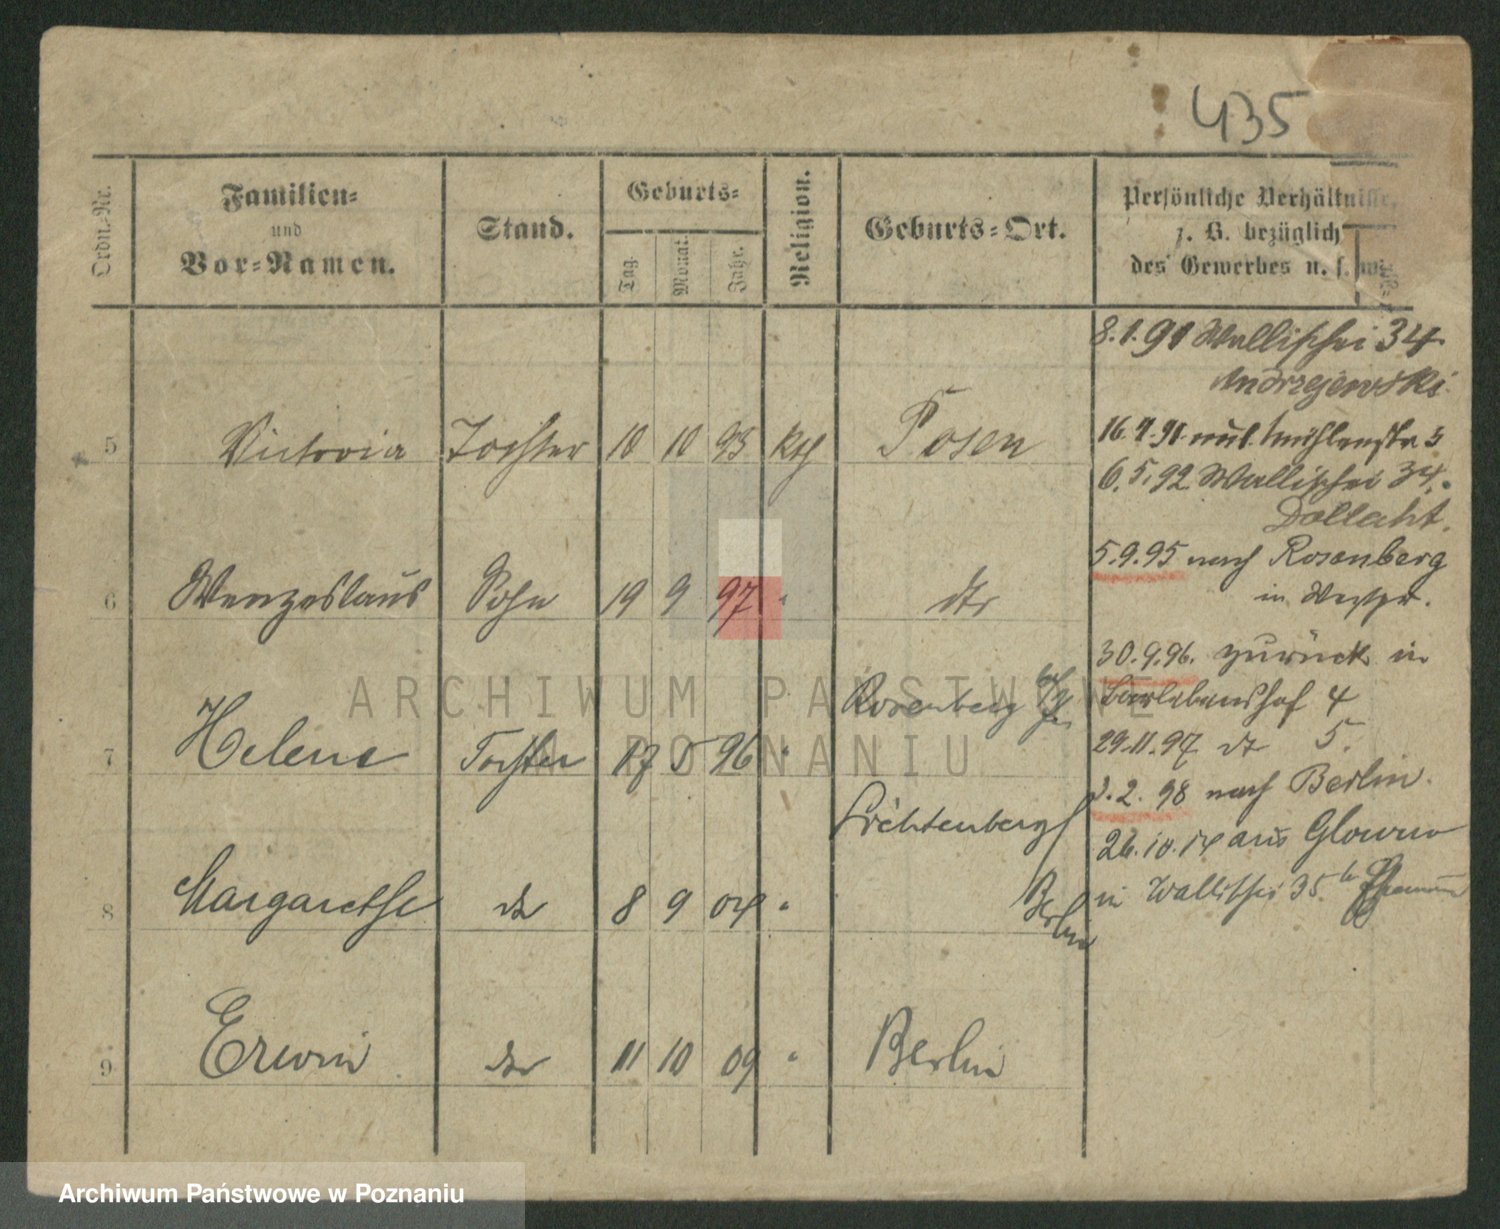 435
Ordn.-Nr.
Familien-
und
Vor-Namen.
Stand.
Geburts-
Tag.
Monat.
Jahr.
Religion.
Geburts-Ort.
Persönliche Verhältnisse,
z. B. bezüglich
des Gewerbes u. s. w.
8.1.91 Wallischei 34
Andrzejewski.
5 Victoria Tochter 10 10 93 kth Posen
16.4.91 Mühlenstr 3
6.5.92 Wallischei 34.
5.9.95 nach Rosenberg
in Westpr.
6 Wenzeslaus Sohn 19 9 97 " dto
30.9.96. zurück in
Rosenberg W/Pr
Carlebenshof 4
7 Helene Tochter 17 5 96 "
29.11.97 dt 5.
3.2.98 nach Berlin.
Lichtenberg/
Berlin
26.10.14 aus Glowno
in Wallischei 35. b
8 Margarethe dto 8 9 04 "
9 Erwin dto 11 10 09 " Berlin
ARCHIWUM PAŃSTWOWE
W POZNANIU
Archiwum Państwowe w Poznaniu